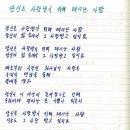 당신은 사랑받기 위해 태어난 사람
당신은 사랑받기 위해 태어난 사람
당신의 삶 속에서 그 사랑 받고 있지요
당신은 사랑받기 위해 태어난 사람
당신의 삶 속에서 그 사랑 받고 있지요
태초부터 시작된 하나님의 사랑은
우리의 만남을 통해
열매를 맺고
당신이 이 세상에 존재함으로 인해
우리에게 얼마나 큰 기쁨이 되는지
당신은 사랑받기 위해 태어난 사람
지금도 그 사랑 받고 있지요